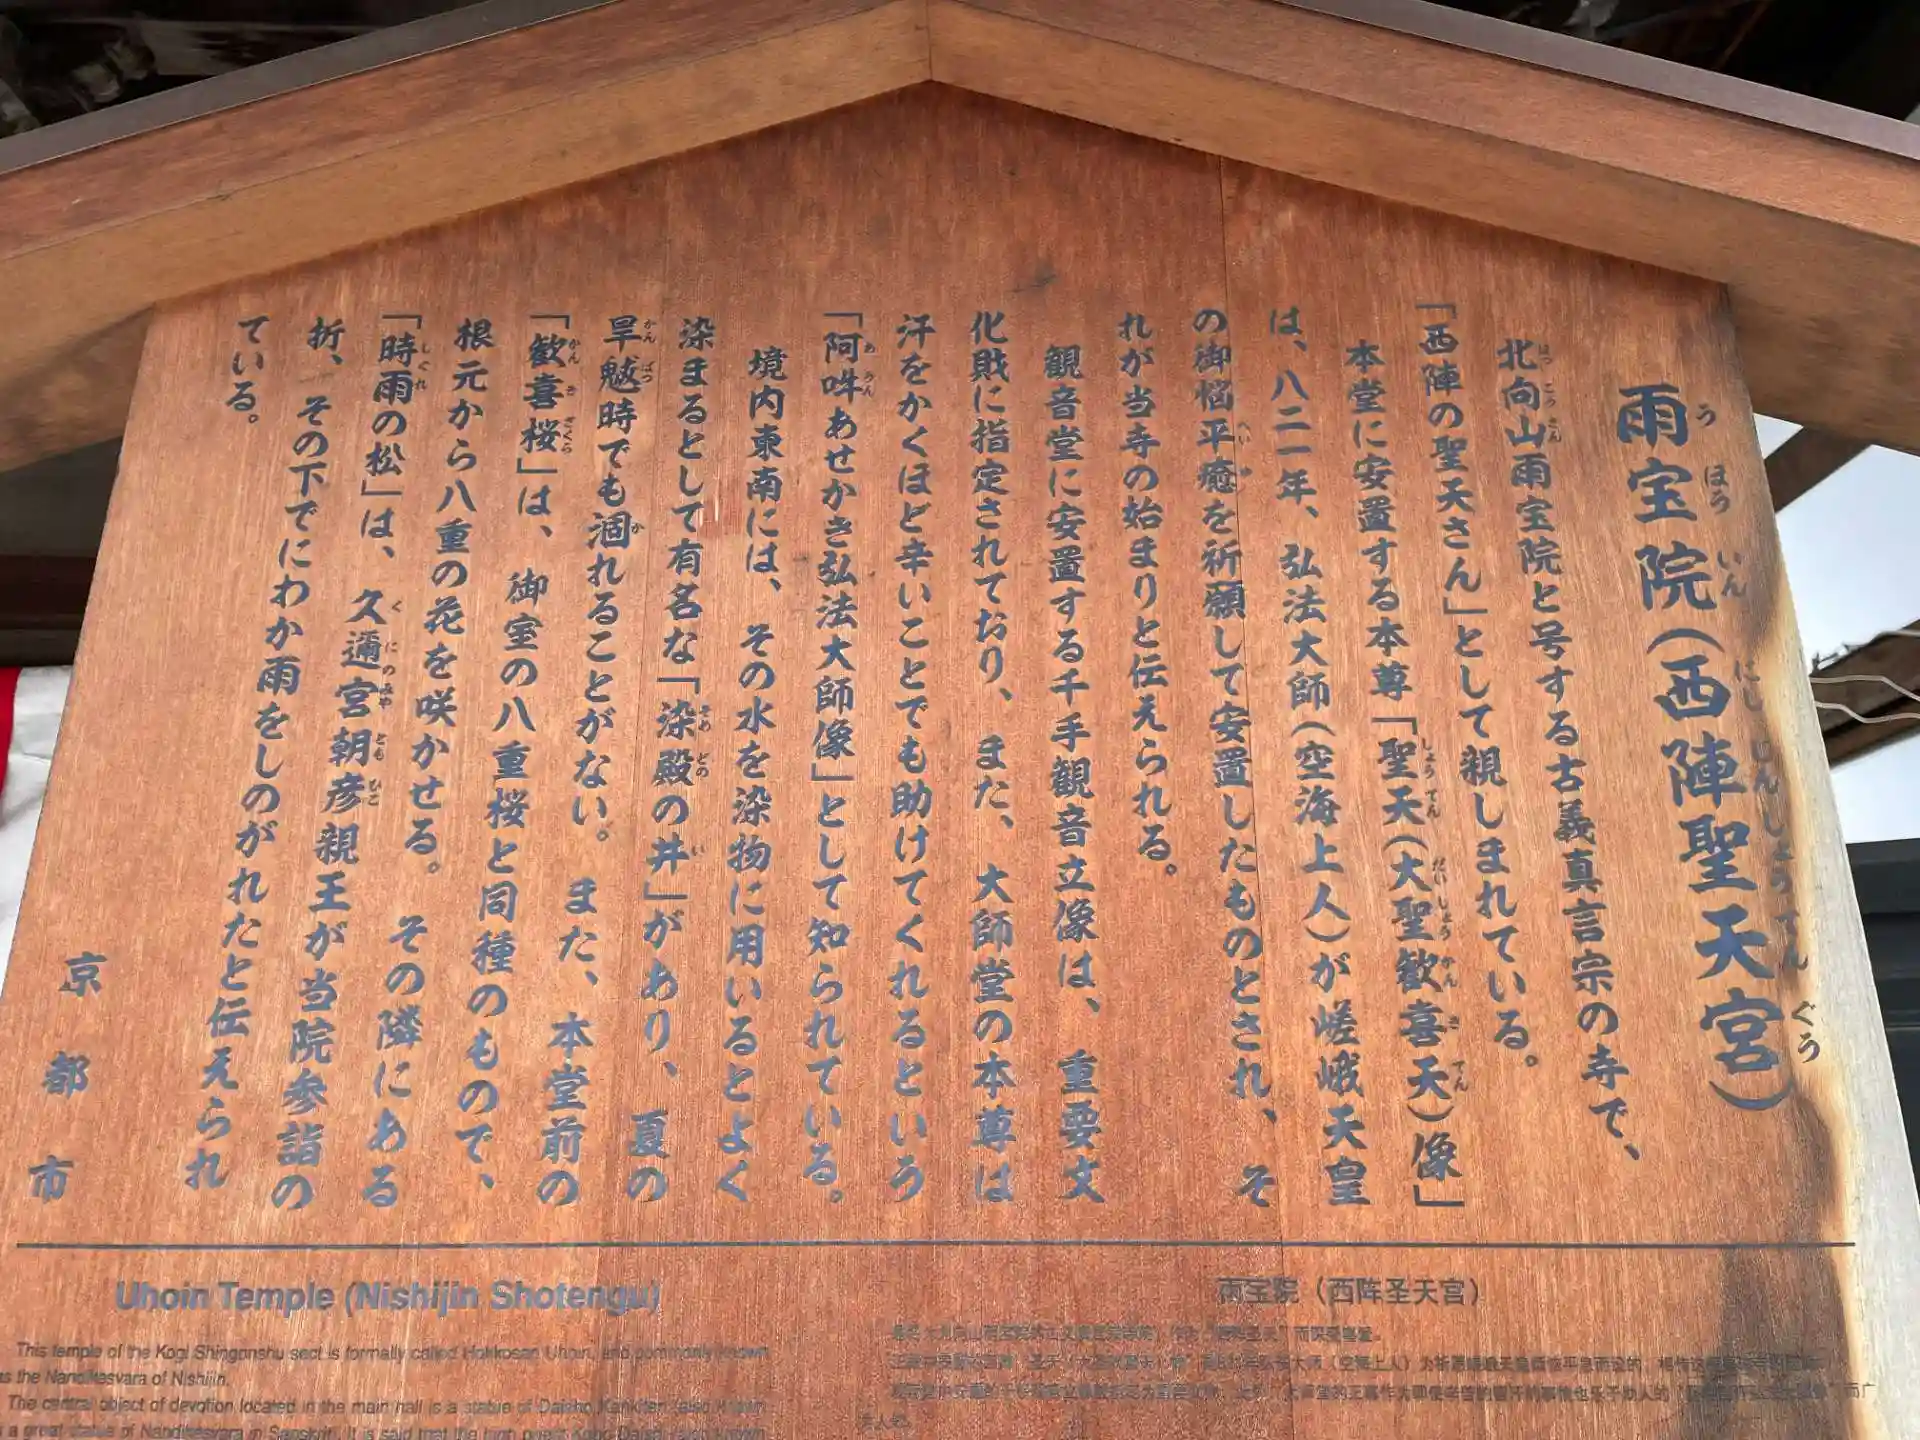 雨宝院（西陣聖天宮）
北向山雨宝院と号する古義真言宗の寺で、
「西陣の聖天さん」として親しまれている。
本堂に安置する本尊「聖天（大聖歓喜天）像」
は、八二一年、弘法大師（空海上人）が嵯峨天皇
の御悩平癒を祈願して安置したものとされ、そ
れが当寺の始まりと伝えられる。
観音堂に安置する千手観音立像は、重要文
化財に指定されており、また、大師堂の本尊は
汗をかくほど辛いことでも助けてくれるという
「阿吽あせかき弘法大師像」として知られている。
境内東南には、その水を染物に用いるとよく
染まるとして有名な「染殿の井」があり、夏の
旱魃時でも涸れることがない。また、本堂前の
「歓喜桜」は、御室の八重桜と同種のもので、
根元から八重の花を咲かせる。その隣にある
「時雨の松」は、久邇宮朝彦親王が当院参詣の
折、その下でにわか雨をしのがれたと伝えられ
ている。
京都市
Uhoin Temple (Nishijin Shotengu)
This temple of the Kogi Shingonshu sect is formally called Hokkosan Uhoin, and commonly known
as the Nandikesvara of Nishijin.
The central object of devotion located in the main hall is a statue of Daisho Kankiten (also known
a great statue of Nandikesvara in Sanskrit. It is said that the high priest Kobo Daishi (also known
雨宝院（西阵圣天宫）